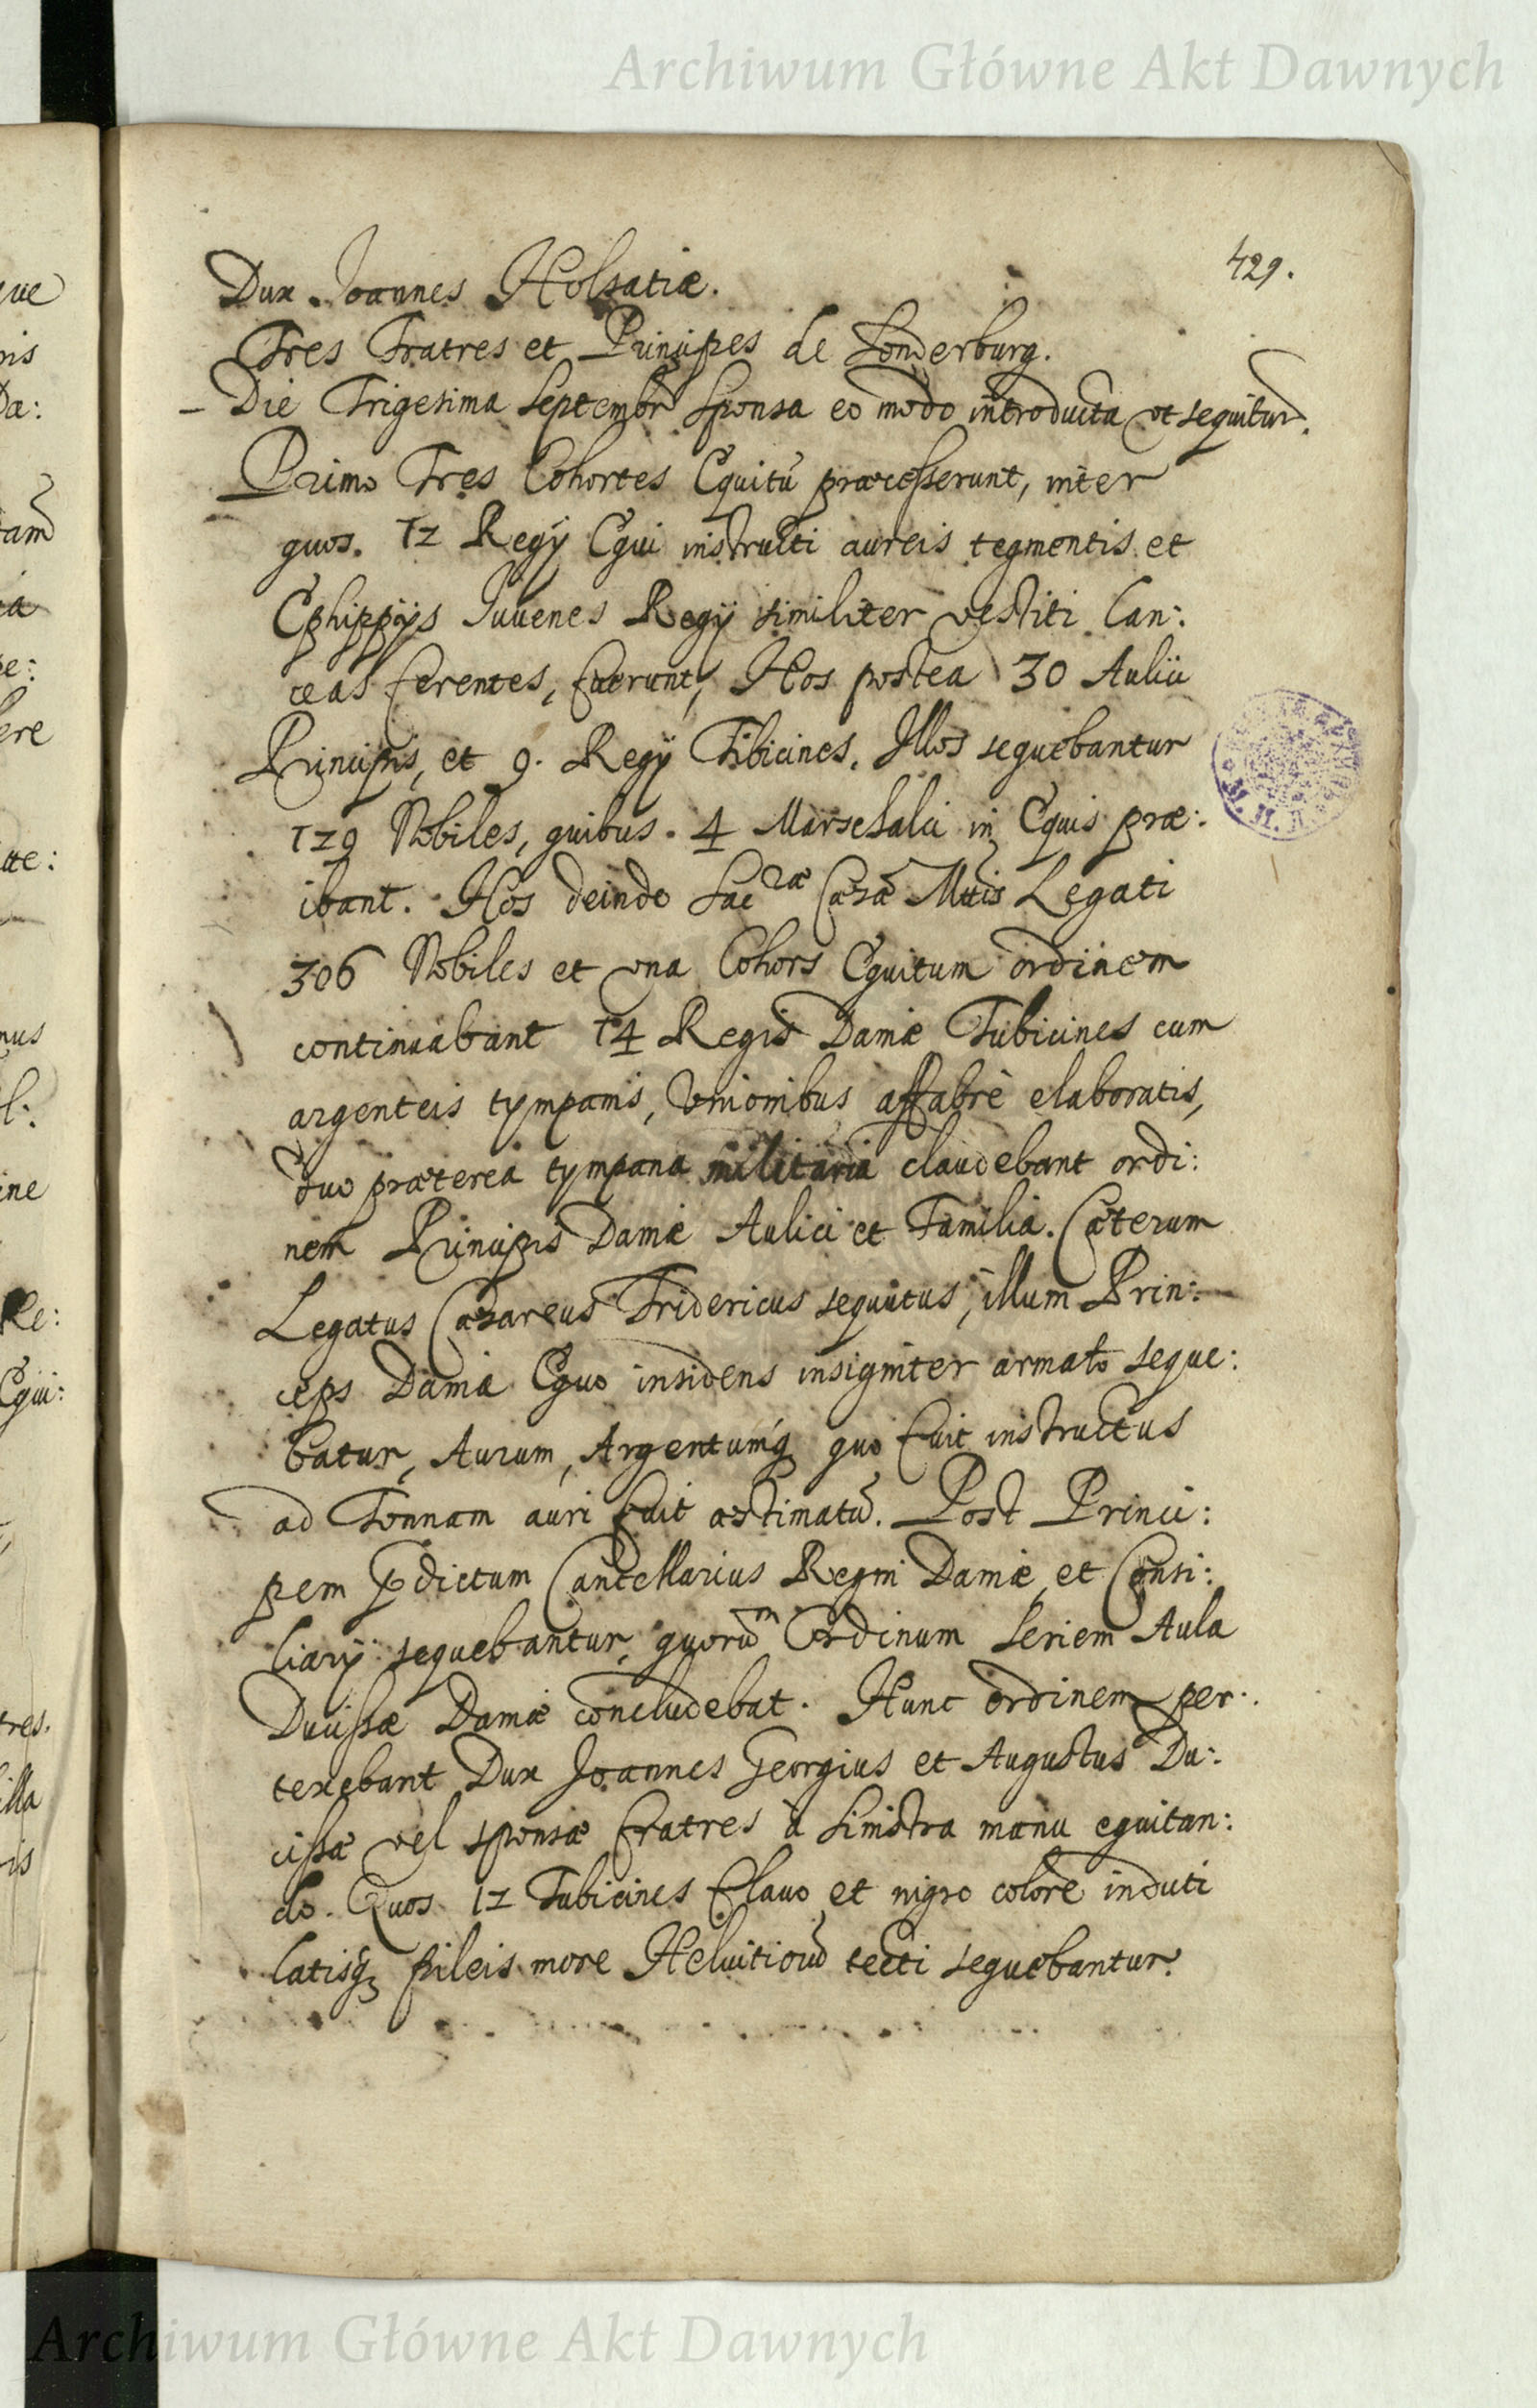 Archiwum Główne Akt Dawnych
429.
Dux Joannes Holsatiæ.
Tres Fratres et Principes de Sonderburg.
– Die Trigesima Septembr Sponsa eo modo introducta ut sequitur.
Primo Tres Cohortes Equitū præcesserunt, inter
quos. 12 Regÿ Equi instructi aureis tegmentis et
Ephippÿs Juvenes Regÿ similiter vestiti Lan:
ceas ferentes, fuerunt, Hos postea 30 Aulici
Principis, et 9. Regÿ Tibicines. Illos sequebantur
129 Nobiles, quibus. 4 Marschalci in Equis præ:
ibant. Hos deinde Sacræ Cæsæ Mttis Legati
306 Nobiles et una Cohors Equitum ordinem
continuabant 14 Regis Daniæ Tubicines cum
argenteis tympanis, Unionibus affabrè elaboratis,
duo præterea tympana militaria claudebant ordi:
nem Principis Daniæ Aulici et Familia. Cæterum
Legatus Cæsareus Fridericus sequutus, illum Prin:
ceps Daniæ Equo insidens insigniter armato seque:
batur, Aurum, Argentumq quo fuit instructus
ad Tonnam auri fuit æstimatū. Post Princi:
pem pdictum Cancellarius Regni Daniæ et Consi:
liarÿ sequebantur, quorum Ordinum Seriem Aula
Ducissæ Daniæ concludebat. Hunc ordinem per:
texebant Dux Joannes Georgius et Augustus Du:
cissæ vel sponsæ fratres à Sinistra manu equitan:
do. Quos 12 Tubicines flavo et nigro colore induti
latisq pileis more Helvitiorū tecti sequebantur.
Archiwum Główne Akt Dawnych